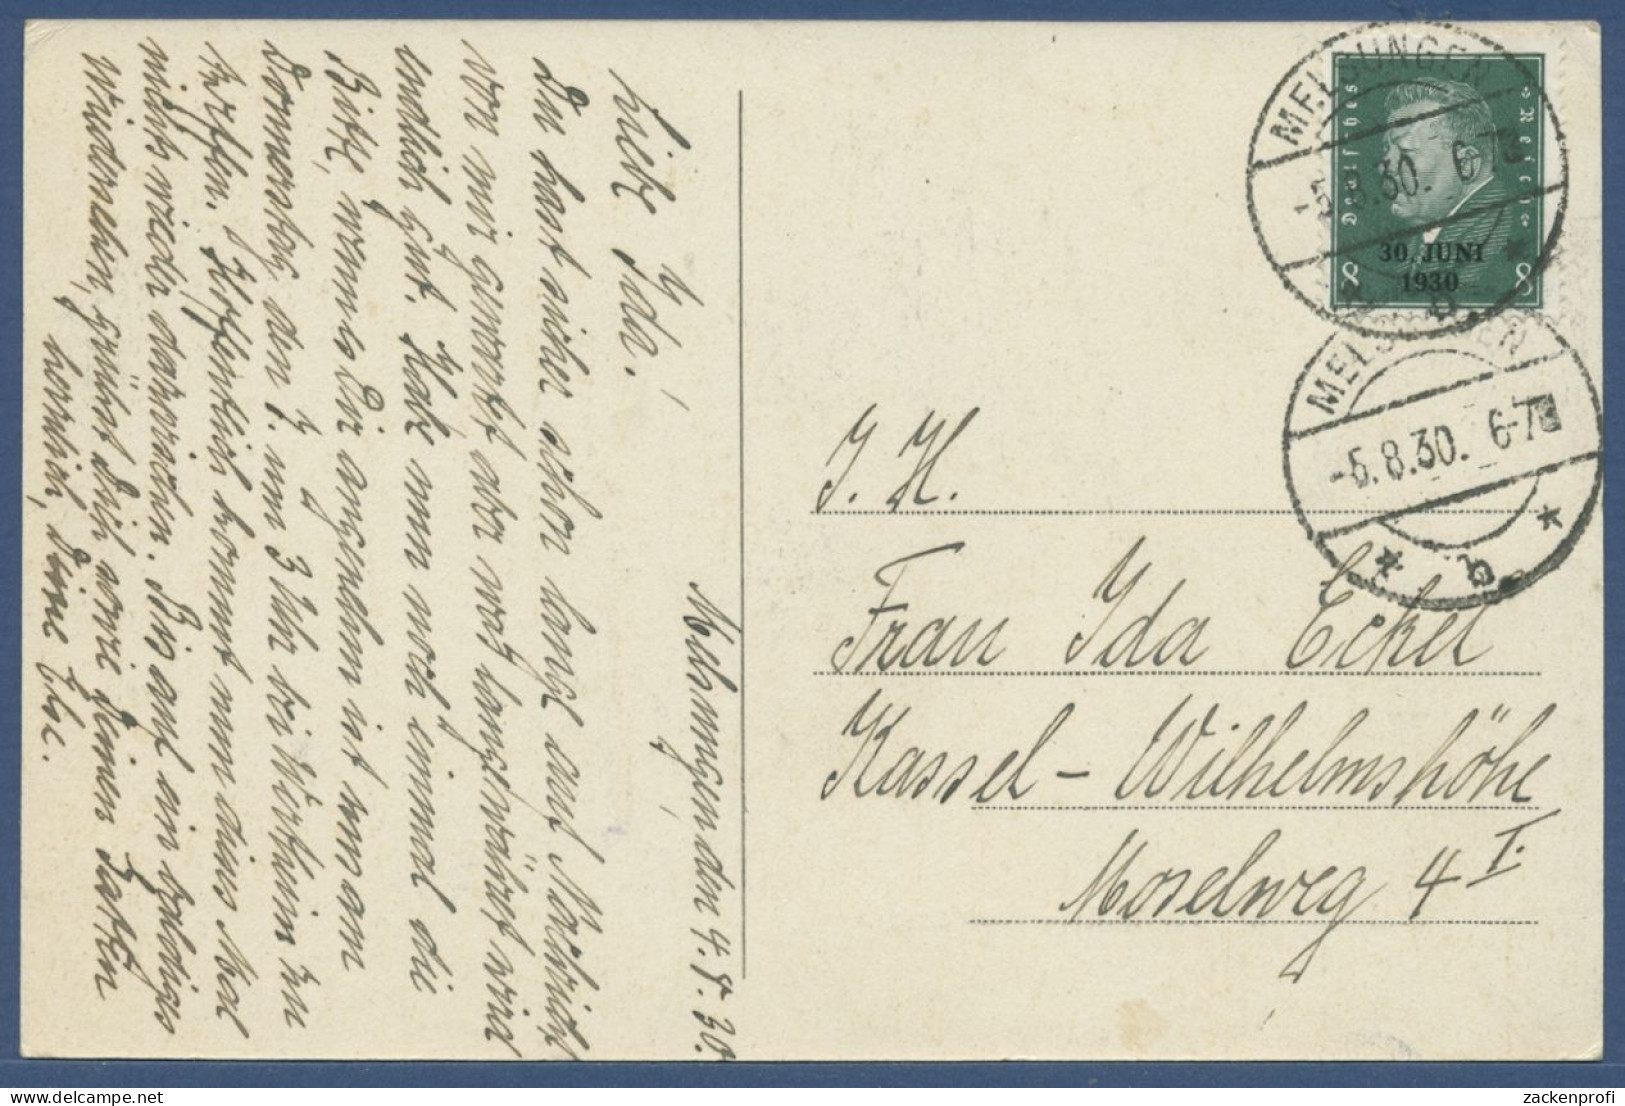 Melsungen, den 4.8.30.
Liebe Ida!
Du hast sicher schon lange auf Nachricht
von mir gewartet, aber was lange währt wird
endlich gut. Habe nun noch einmal die
Bitte, wenn es Dir angenehm ist uns am
Donnerstag, den 7. um 3 Uhr bei Wirtheim zu
treffen. Hoffentlich kommt nun dieses Mal
nichts wieder dazwischen. Bis auf ein baldiges
Wiedersehen, grüsst Dich sowie Deinen Gatten
herzlich, Deine Else.
MELSUNGEN
-5.8.30. 6-7
Deutsches Reich
30. JUNI
1930
8 8
MELSUNGEN
-5.8.30. 6-7
* b *
I. H.
Frau Ida Eckel
Kassel - Wilhelmshöhe
Moselweg 4 I.
zackenprofi